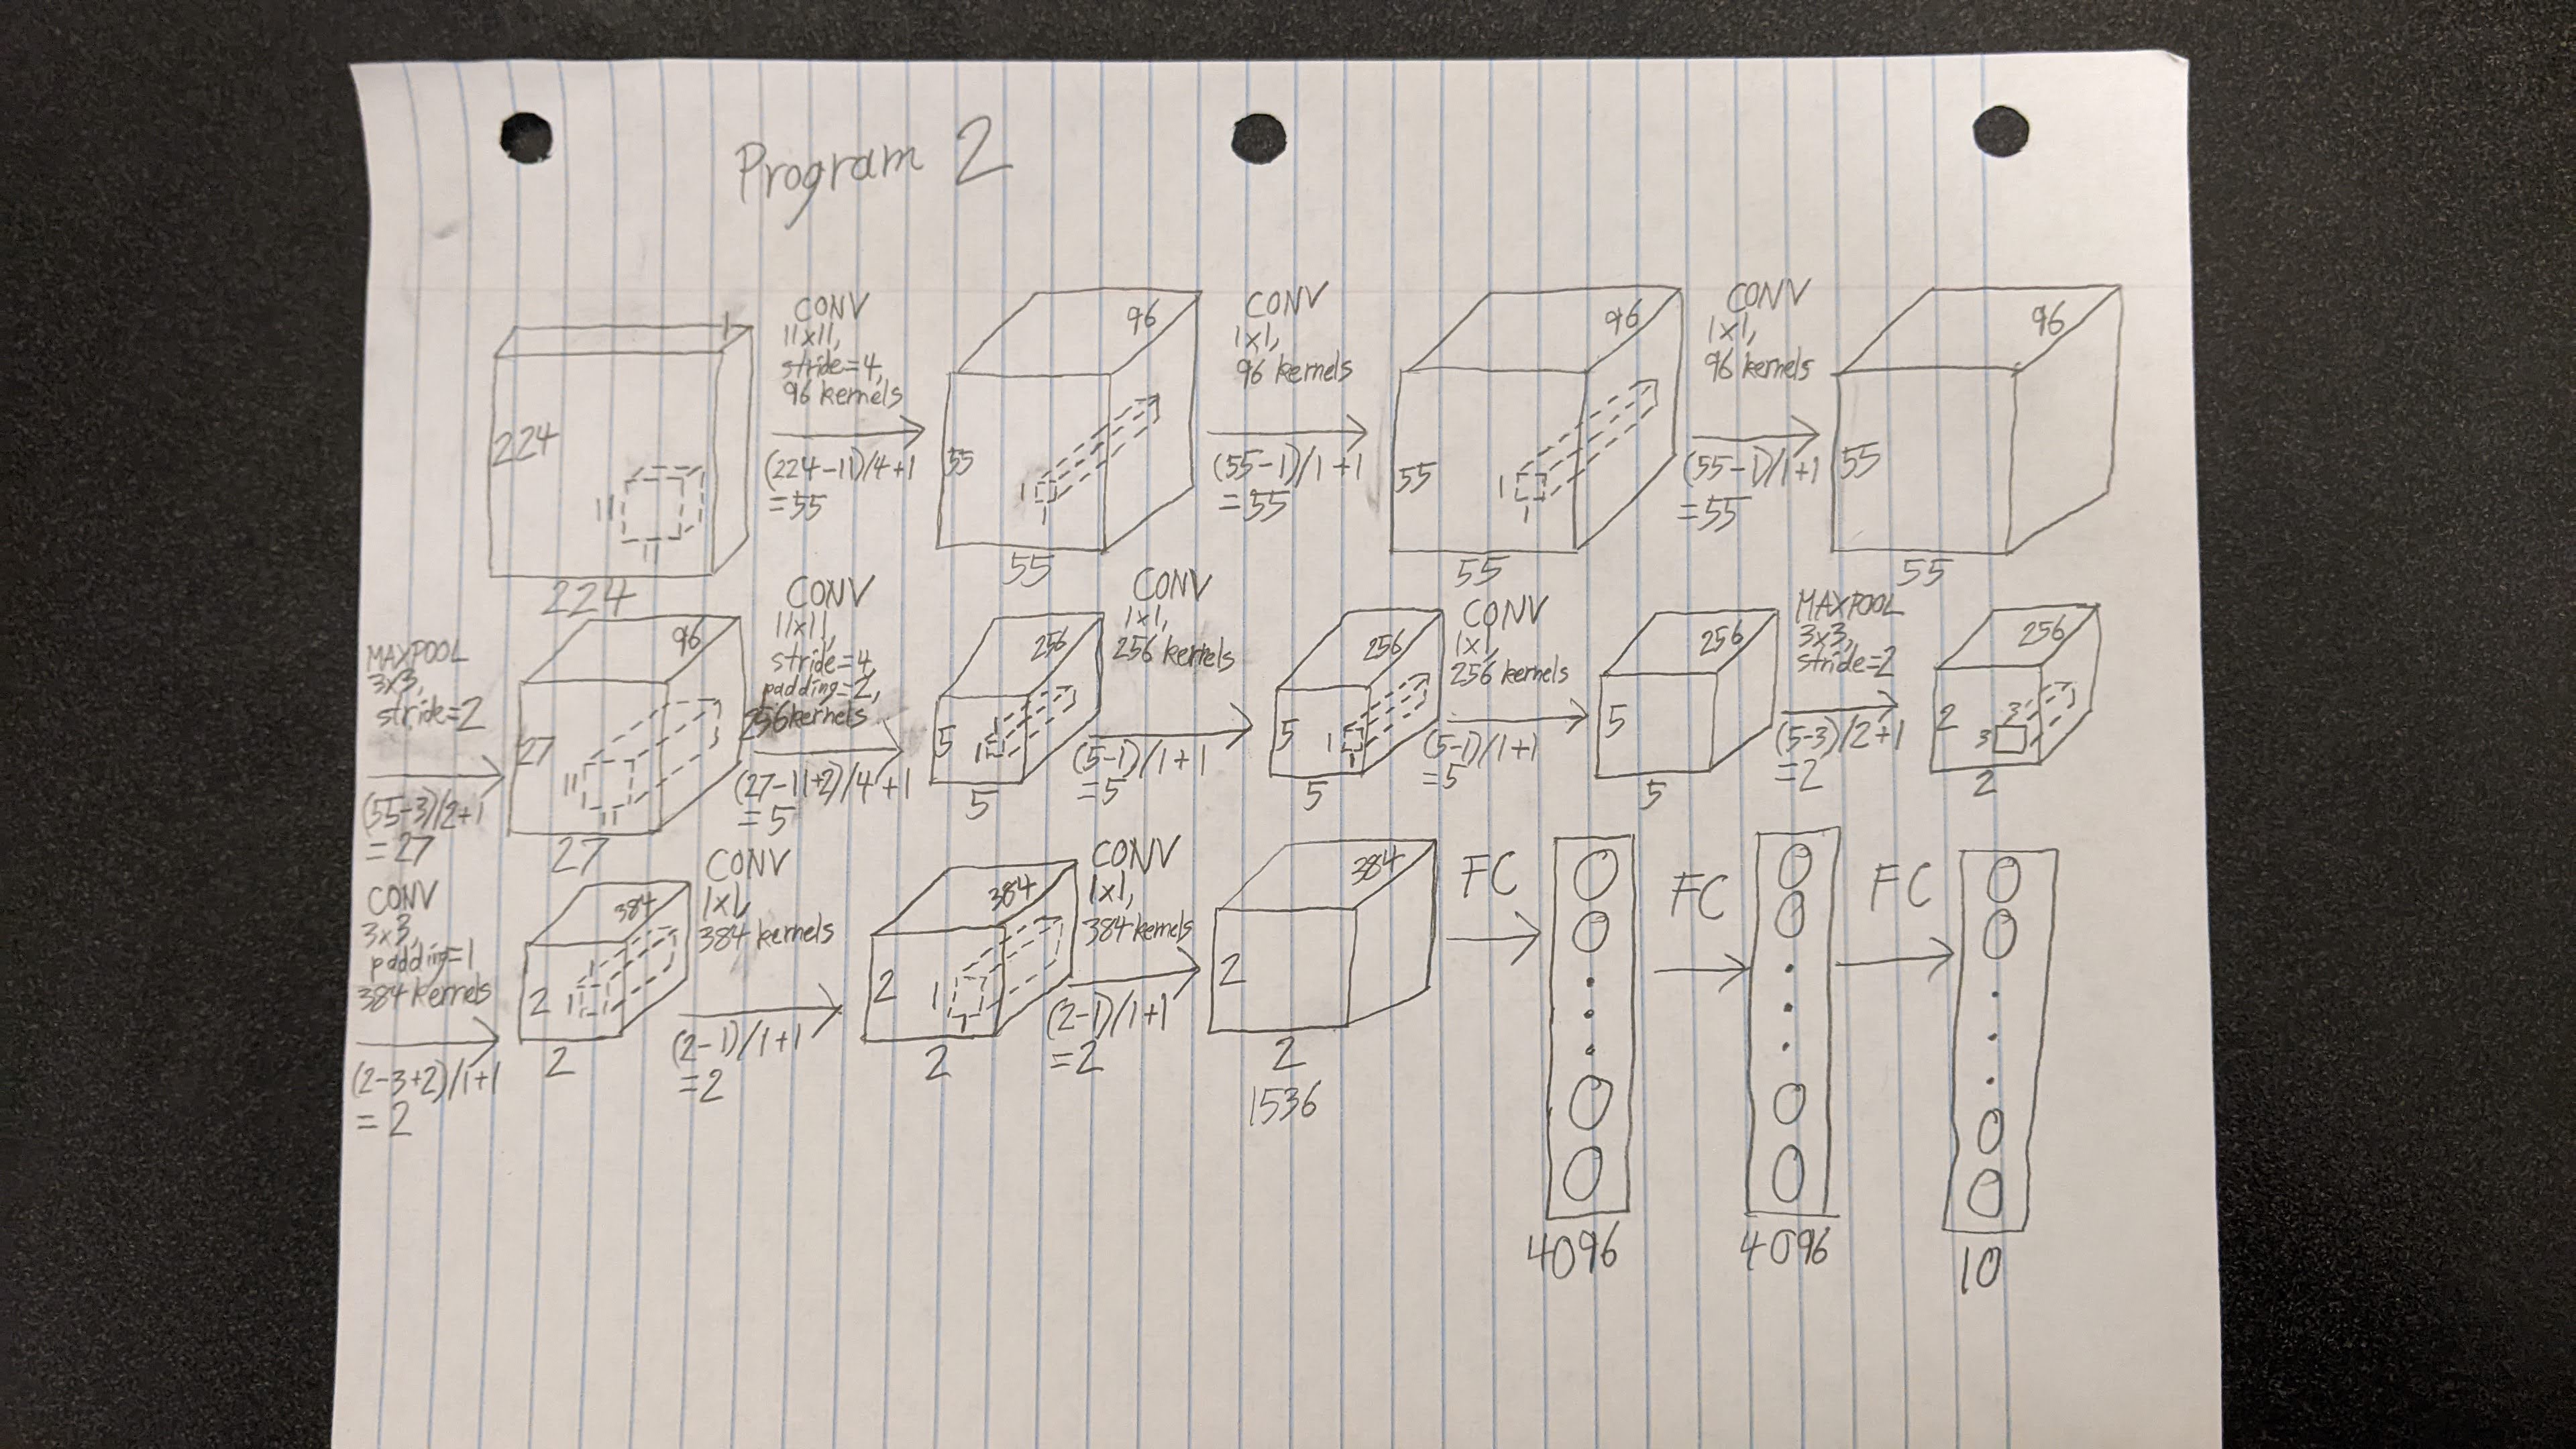 Program 2
1
224
11
11
224
CONV
11x11,
stride=4,
96 kernels
(224-11)/4+1
=55
96
55
1
1
55
CONV
1x1,
96 kernels
(55-1)/1+1
=55
96
55
1
1
55
CONV
1x1,
96 kernels
(55-1)/1+1
=55
96
55
55
MAXPOOL
3x3,
stride=2
(55-3)/2+1
=27
96
27
11
11
27
CONV
11x11,
stride=4,
padding=2,
256 kernels
(27-11+2)/4+1
=5
256
5
1
5
CONV
1x1,
256 kernels
(5-1)/1+1
=5
256
5
1
1
5
CONV
1x1
256 kernels
(5-1)/1+1
=5
256
5
5
MAXPOOL
3x3,
stride=2
(5-3)/2+1
=2
256
2
3
3
2
CONV
3x3,
padding=1
384 kernels
(2-3+2)/1+1
=2
384
2
1
1
2
CONV
1x1,
384 kernels
(2-1)/1+1
=2
384
2
1
1
2
CONV
1x1,
384 kernels
(2-1)/1+1
=2
384
2
2
1536
FC
4096
FC
4096
FC
10